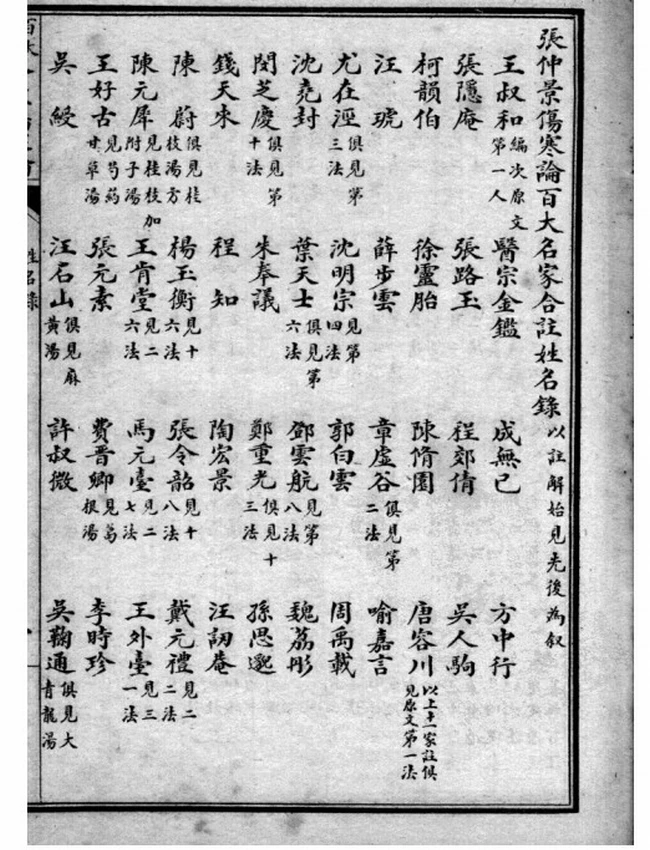 張仲景傷寒論百大名家合註姓名錄 以註解始見先後為叙
王叔和 編次原文第一人 醫宗金鑑 成無已 方中行
張隱庵 張路玉 程郊倩 吳人駒
柯韻伯 徐靈胎 陳脩園 唐容川 以上十一家註俱見原文第一法
汪琥 薛步雲 章虛谷 俱見第二法 喻嘉言
尤在涇 俱見第三法 沈明宗 見第四法 郭白雲 周禹載
沈堯封 葉天士 俱見第六法 鄧雲航 見第八法 魏荔彤
閔芝慶 俱見第十法 朱奉議 鄭重光 俱見十三法 孫思邈
錢天來 程知 陶宏景 汪訒菴
陳蔚 俱見桂枝湯方 楊玉衡 見十六法 張令韶 見十八法 戴元禮 見二二法
陳元犀 見桂枝加附子湯 王肯堂 見二六法 馬元臺 見二七法 王外臺 見三一法
王好古 見芍藥甘草湯 張元素 費晋卿 見葛根湯 李時珍
吳綬 汪石山 俱見麻黃湯 許叔微 吳鞠通 俱見大青龍湯
姓名錄